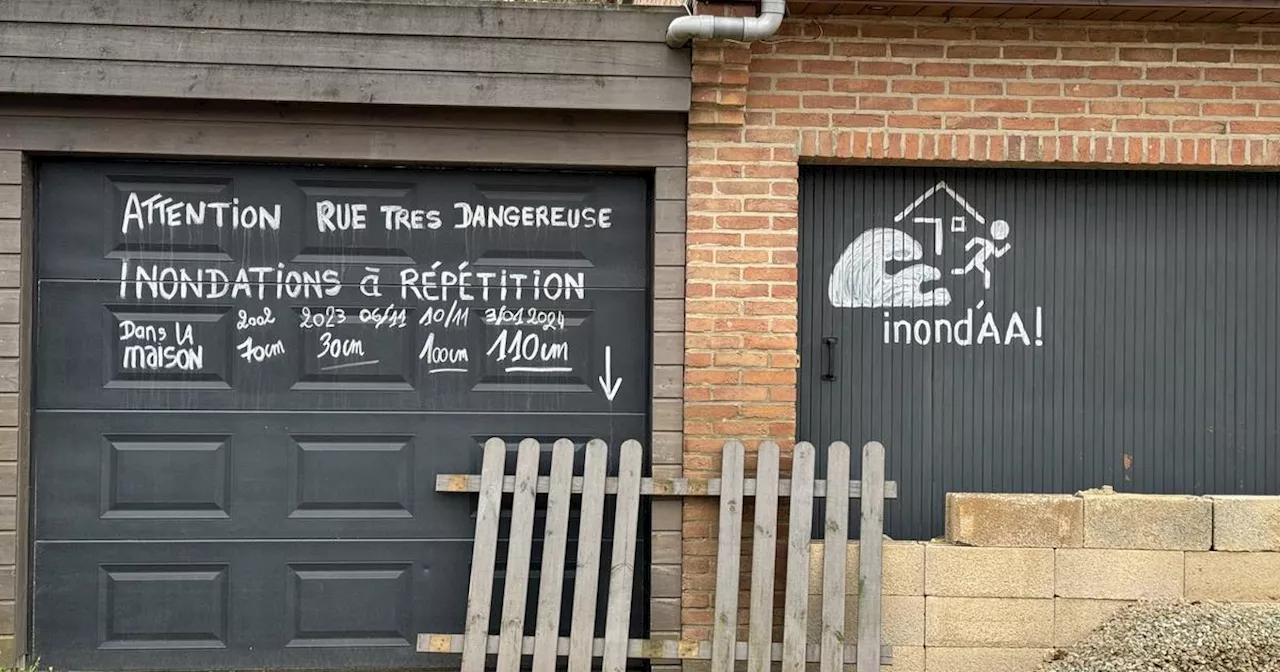 ATTENTION RUE TRES DANGEREUSE
INONDATIONS à RÉPÉTITION
2002 2023 06/11 10/11 3/01 2024
Dans LA MAISON 70cm 30cm 100cm 110cm
inond'AA!